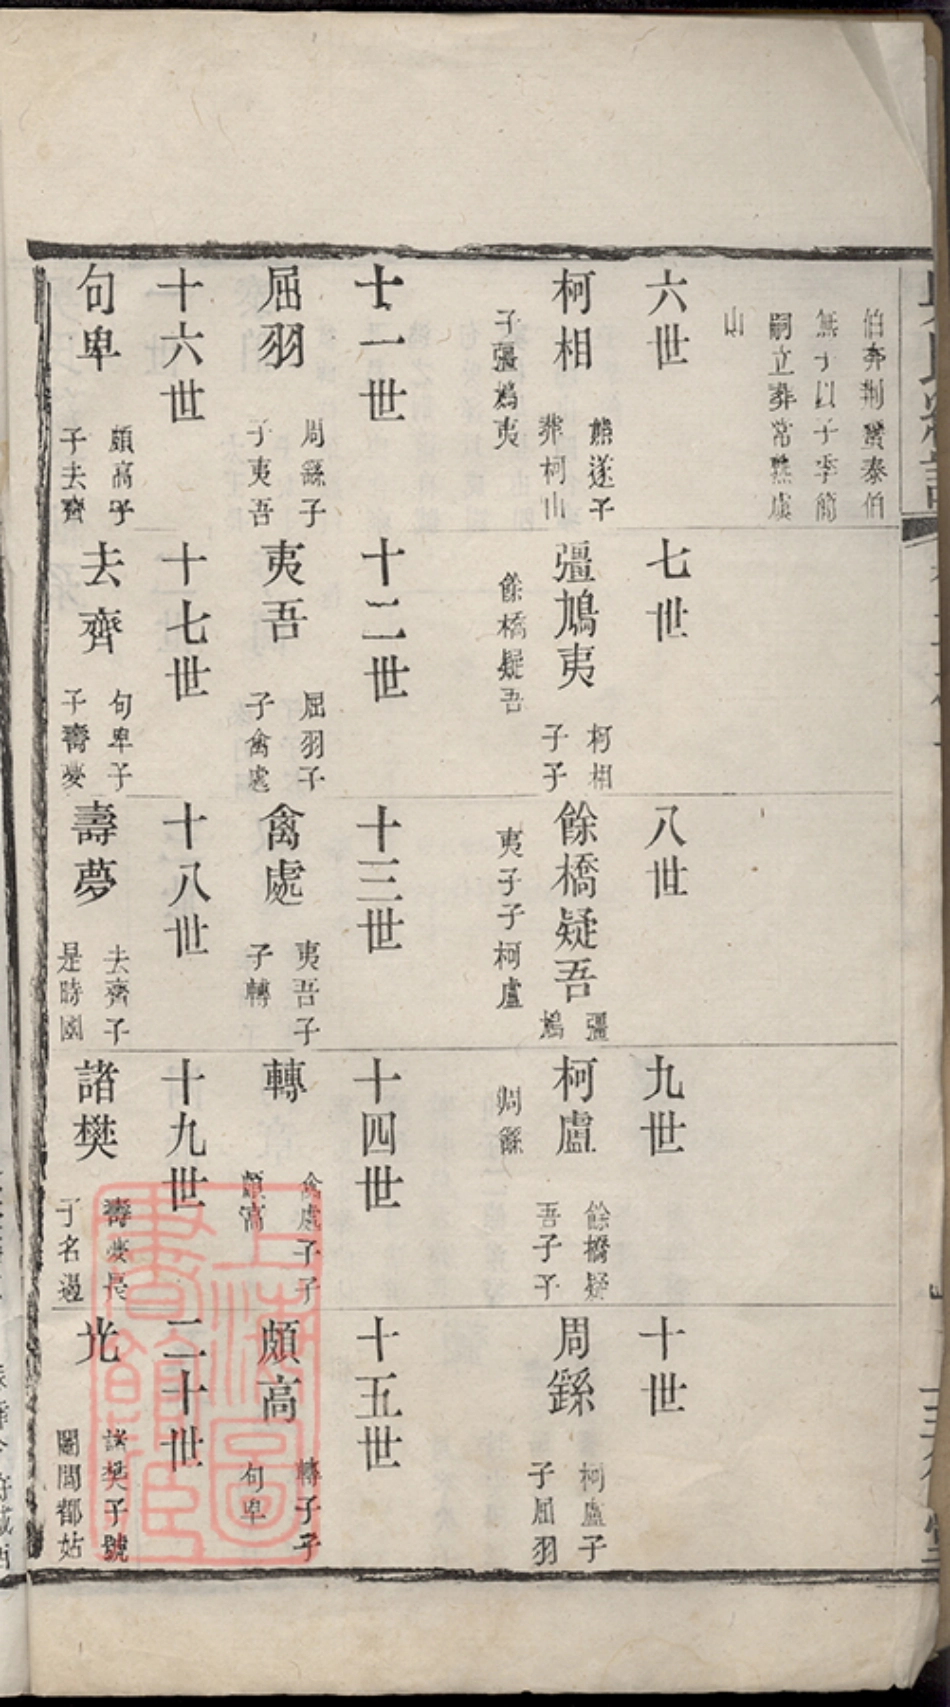 伯奔荆蠻泰伯
無子以子季簡
嗣立葬常熟虞
山
六世
柯相
熊遂子
葬柯山
子彊鳩夷
七世
彊鳩夷
柯相
子子
餘橋疑吾
八世
餘橋疑吾
彊
鳩
夷子子柯盧
九世
柯盧
餘橋疑
吾子子
周繇
十世
周繇
柯盧子
子屈羽
十一世
屈羽
周繇子
子夷吾
十二世
夷吾
屈羽子
子禽處
十三世
禽處
夷吾子
子轉
十四世
轉
禽處子子
頗高
十五世
頗高
轉子子
句卑
十六世
句卑
頗高子
子去齊
十七世
去齊
句卑子
子壽夢
十八世
壽夢
去齊子
是時國
十九世
諸樊
壽夢長
子名遏
二十世
光
諸樊子號
闔閭都姑
上海圖書館藏